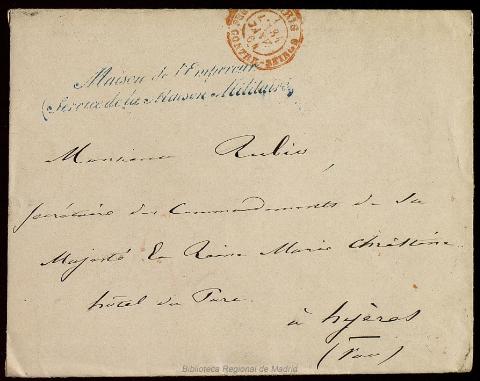 PARIS
CONTRE-SEINGS
Maison de l'Empereur
(Service de la Maison Militaire)
Monsieur Rubio
Secrétaire des Commandements de Sa
Majesté la Reine Marie Christine
hôtel du Parc
à hyères
(Var)
Biblioteca Regional de Madrid